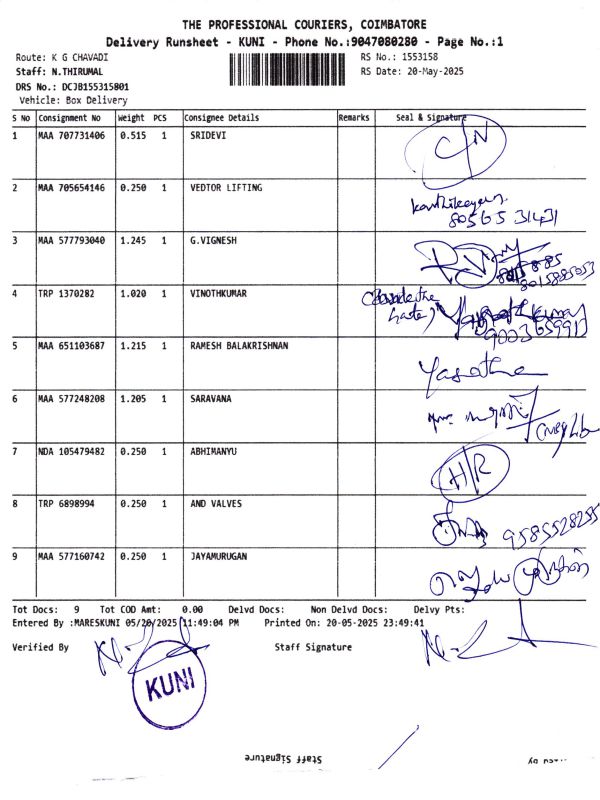 THE PROFESSIONAL COURIERS, COIMBATORE
Delivery Runsheet - KUNI - Phone No.:9047080280 - Page No.:1
Route: K G CHAVADI
RS No.: 1553158
Staff: N.THIRUMAL
RS Date: 20-May-2025
DRS No.: DCJB155315801
Vehicle: Box Delivery
S No Consignment No Weight PCS Consignee Details Remarks Seal & Signature
1 MAA 707731406 0.515 1 SRIDEVI
2 MAA 705654146 0.250 1 VEDTOR LIFTING
karthikeyan
80565 31431
3 MAA 577793040 1.245 1 G.VIGNESH
8015885053
4 TRP 1370282 1.020 1 VINOTHKUMAR
5 MAA 651103687 1.215 1 RAMESH BALAKRISHNAN
6 MAA 577248208 1.205 1 SARAVANA
7 NDA 105479482 0.250 1 ABHIMANYU
HR
8 TRP 6898994 0.250 1 AND VALVES
9585528255
9 MAA 577160742 0.250 1 JAYAMURUGAN
Tot Docs: 9 Tot COD Amt: 0.00 Delvd Docs: Non Delvd Docs: Delvy Pts:
Entered By :MARESKUNI 05/20/2025 11:49:04 PM Printed On: 20-05-2025 23:49:41
Verified By Staff Signature
KUNI
Staff Signature